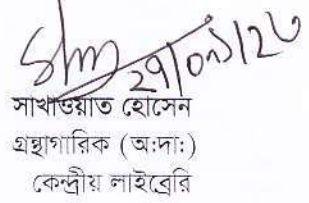 ২৭/০৯/২৩
সাখাওয়াত হোসেন
গ্রন্থাগারিক (অ:দা:)
কেন্দ্রীয় লাইব্রেরি